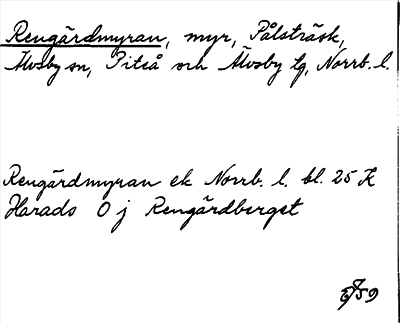 Rengärdmyran, myr, Pålsträsk,
Älvsby sn, Piteå och Älvsby tg, Norrb. l.
Rengärdmyran ek Norrb. l. bl. 25 K
Harads O j Rengärdberget